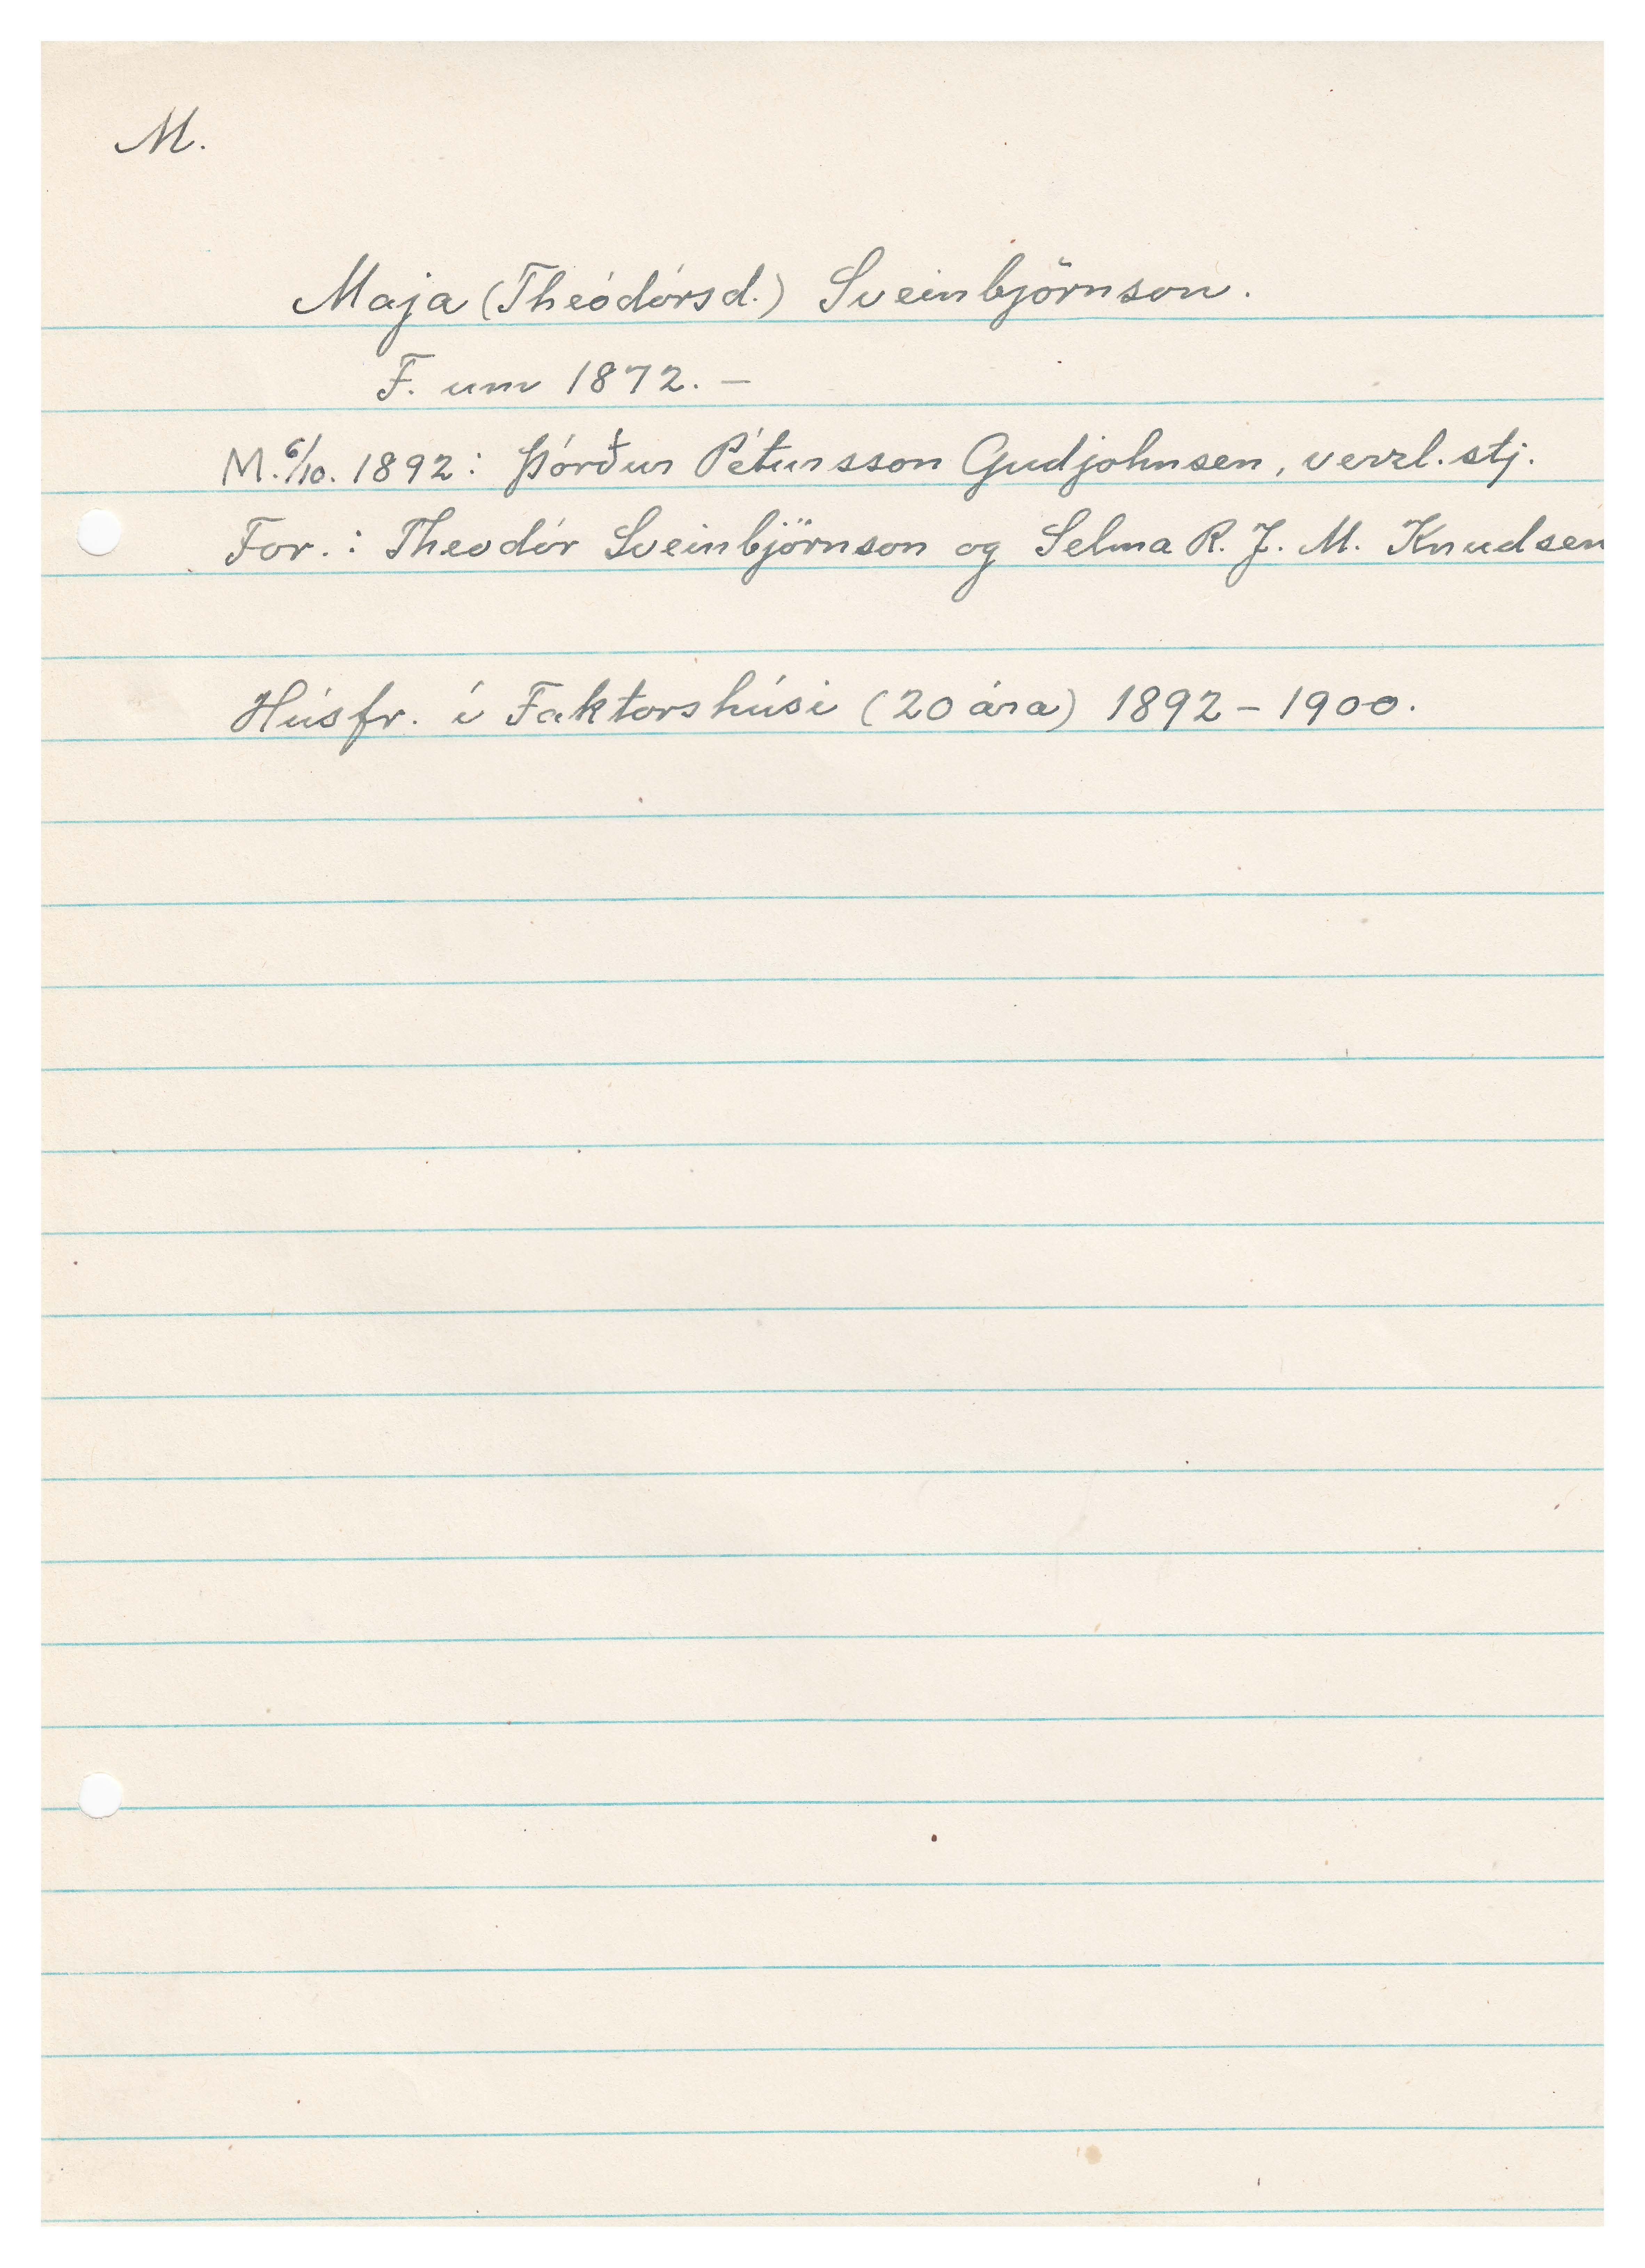 M.
Maja (Theódórsd.) Sveinbjörnson.
F. um 1872. –
M. 6/10. 1892: Þórður Pétursson Gudjohnsen, verzl.stj.
For.: Theodór Sveinbjörnson og Selma R. J. M. Knudsen
Húsfr. í Faktorshúsi (20 ára) 1892 – 1900.